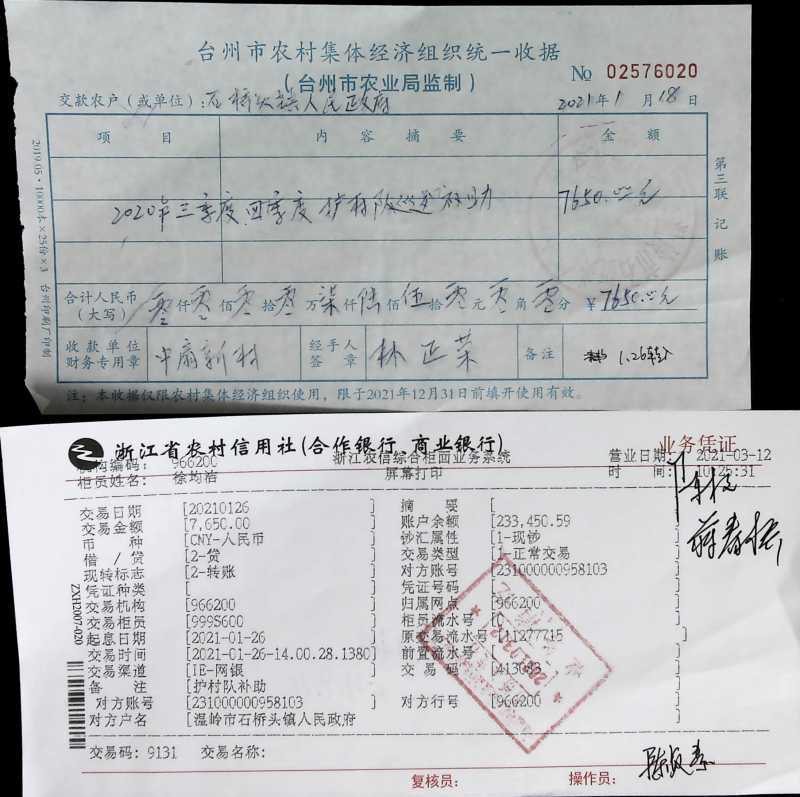 台州市农村集体经济组织统一收据
(台州市农业局监制)
No 02576020
交款农户(或单位):石桥头镇人民政府 2021年1月18日
项 目 内 容 摘 要 金 额
2020年三季度、四季度护村队巡逻补助 7650.00元
合计人民币(大写) 零仟零佰零拾零万柒仟陆佰伍拾零元零角零分 ¥7650.00元
收款单位财务专用章 中扇新村 经手人签章 林正荣 备注 1.26转入
注:本收据仅限农村集体经济组织使用,限于2021年12月31日前填开使用有效。
第三联 记账
2019.05·10000本×25份×3 台州印刷厂印制
浙江省农村信用社(合作银行、商业银行) 业务凭证
机构编码: 966200 浙江农信综合柜面业务系统 营业日期: 2021-03-12
柜员姓名: 徐均洁 屏幕打印 时 间: 10:25:31
交易日期 [20210126 摘 要 [
交易金额 [7,650.00 账户余额 [233,450.59
币 种 [CNY-人民币 钞汇属性 [1-现钞
借/贷 [2-贷 交易类型 [1-正常交易
现转标志 [2-转账 对方账号 [231000000958103
凭证种类 [ 凭证号码 [
交易机构 [966200 归属网点 [966200
交易柜员 [999S600 柜员流水号 [0
起息日期 [2021-01-26 原交易流水号 [11277715
交易时间 [2021-01-26-14.00.28.1380] 前置流水号 [
交易渠道 [IE-网银 交 易 码 [413033
备 注 [护村队补助
对方账号 [231000000958103 对方行号 [966200
对方户名 [温岭市石桥头镇人民政府
交易码: 9131 交易名称:
复核员: 操作员:
ZXH2007-020